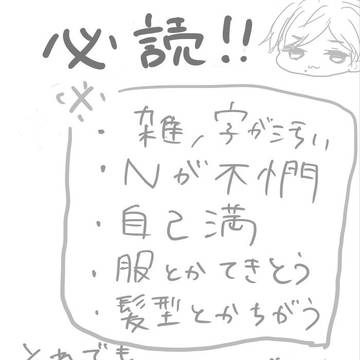 必読!!
※
・雑、字が汚い
・Nが不憫
・自己満
・服とかてきとう
・髪型とかちがう
それでも